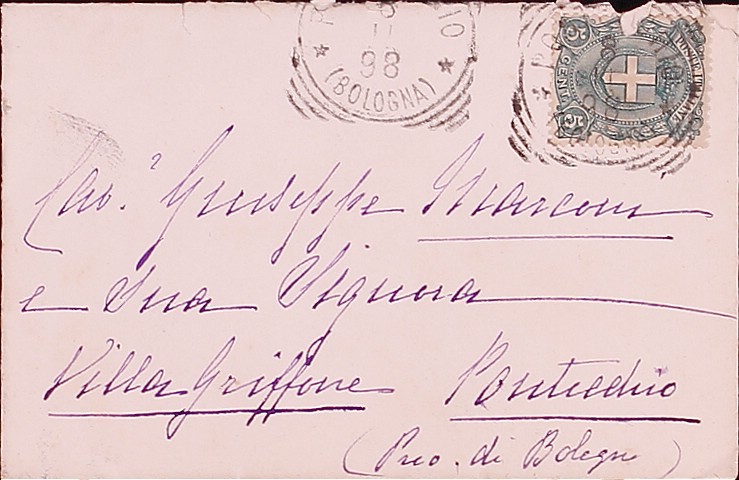 11
98
(BOLOGNA)
5
CENT
5
Cav. Giuseppe Marconi
e Sua Signora
Villa Griffone Pontecchio
(Prov. di Bologna)